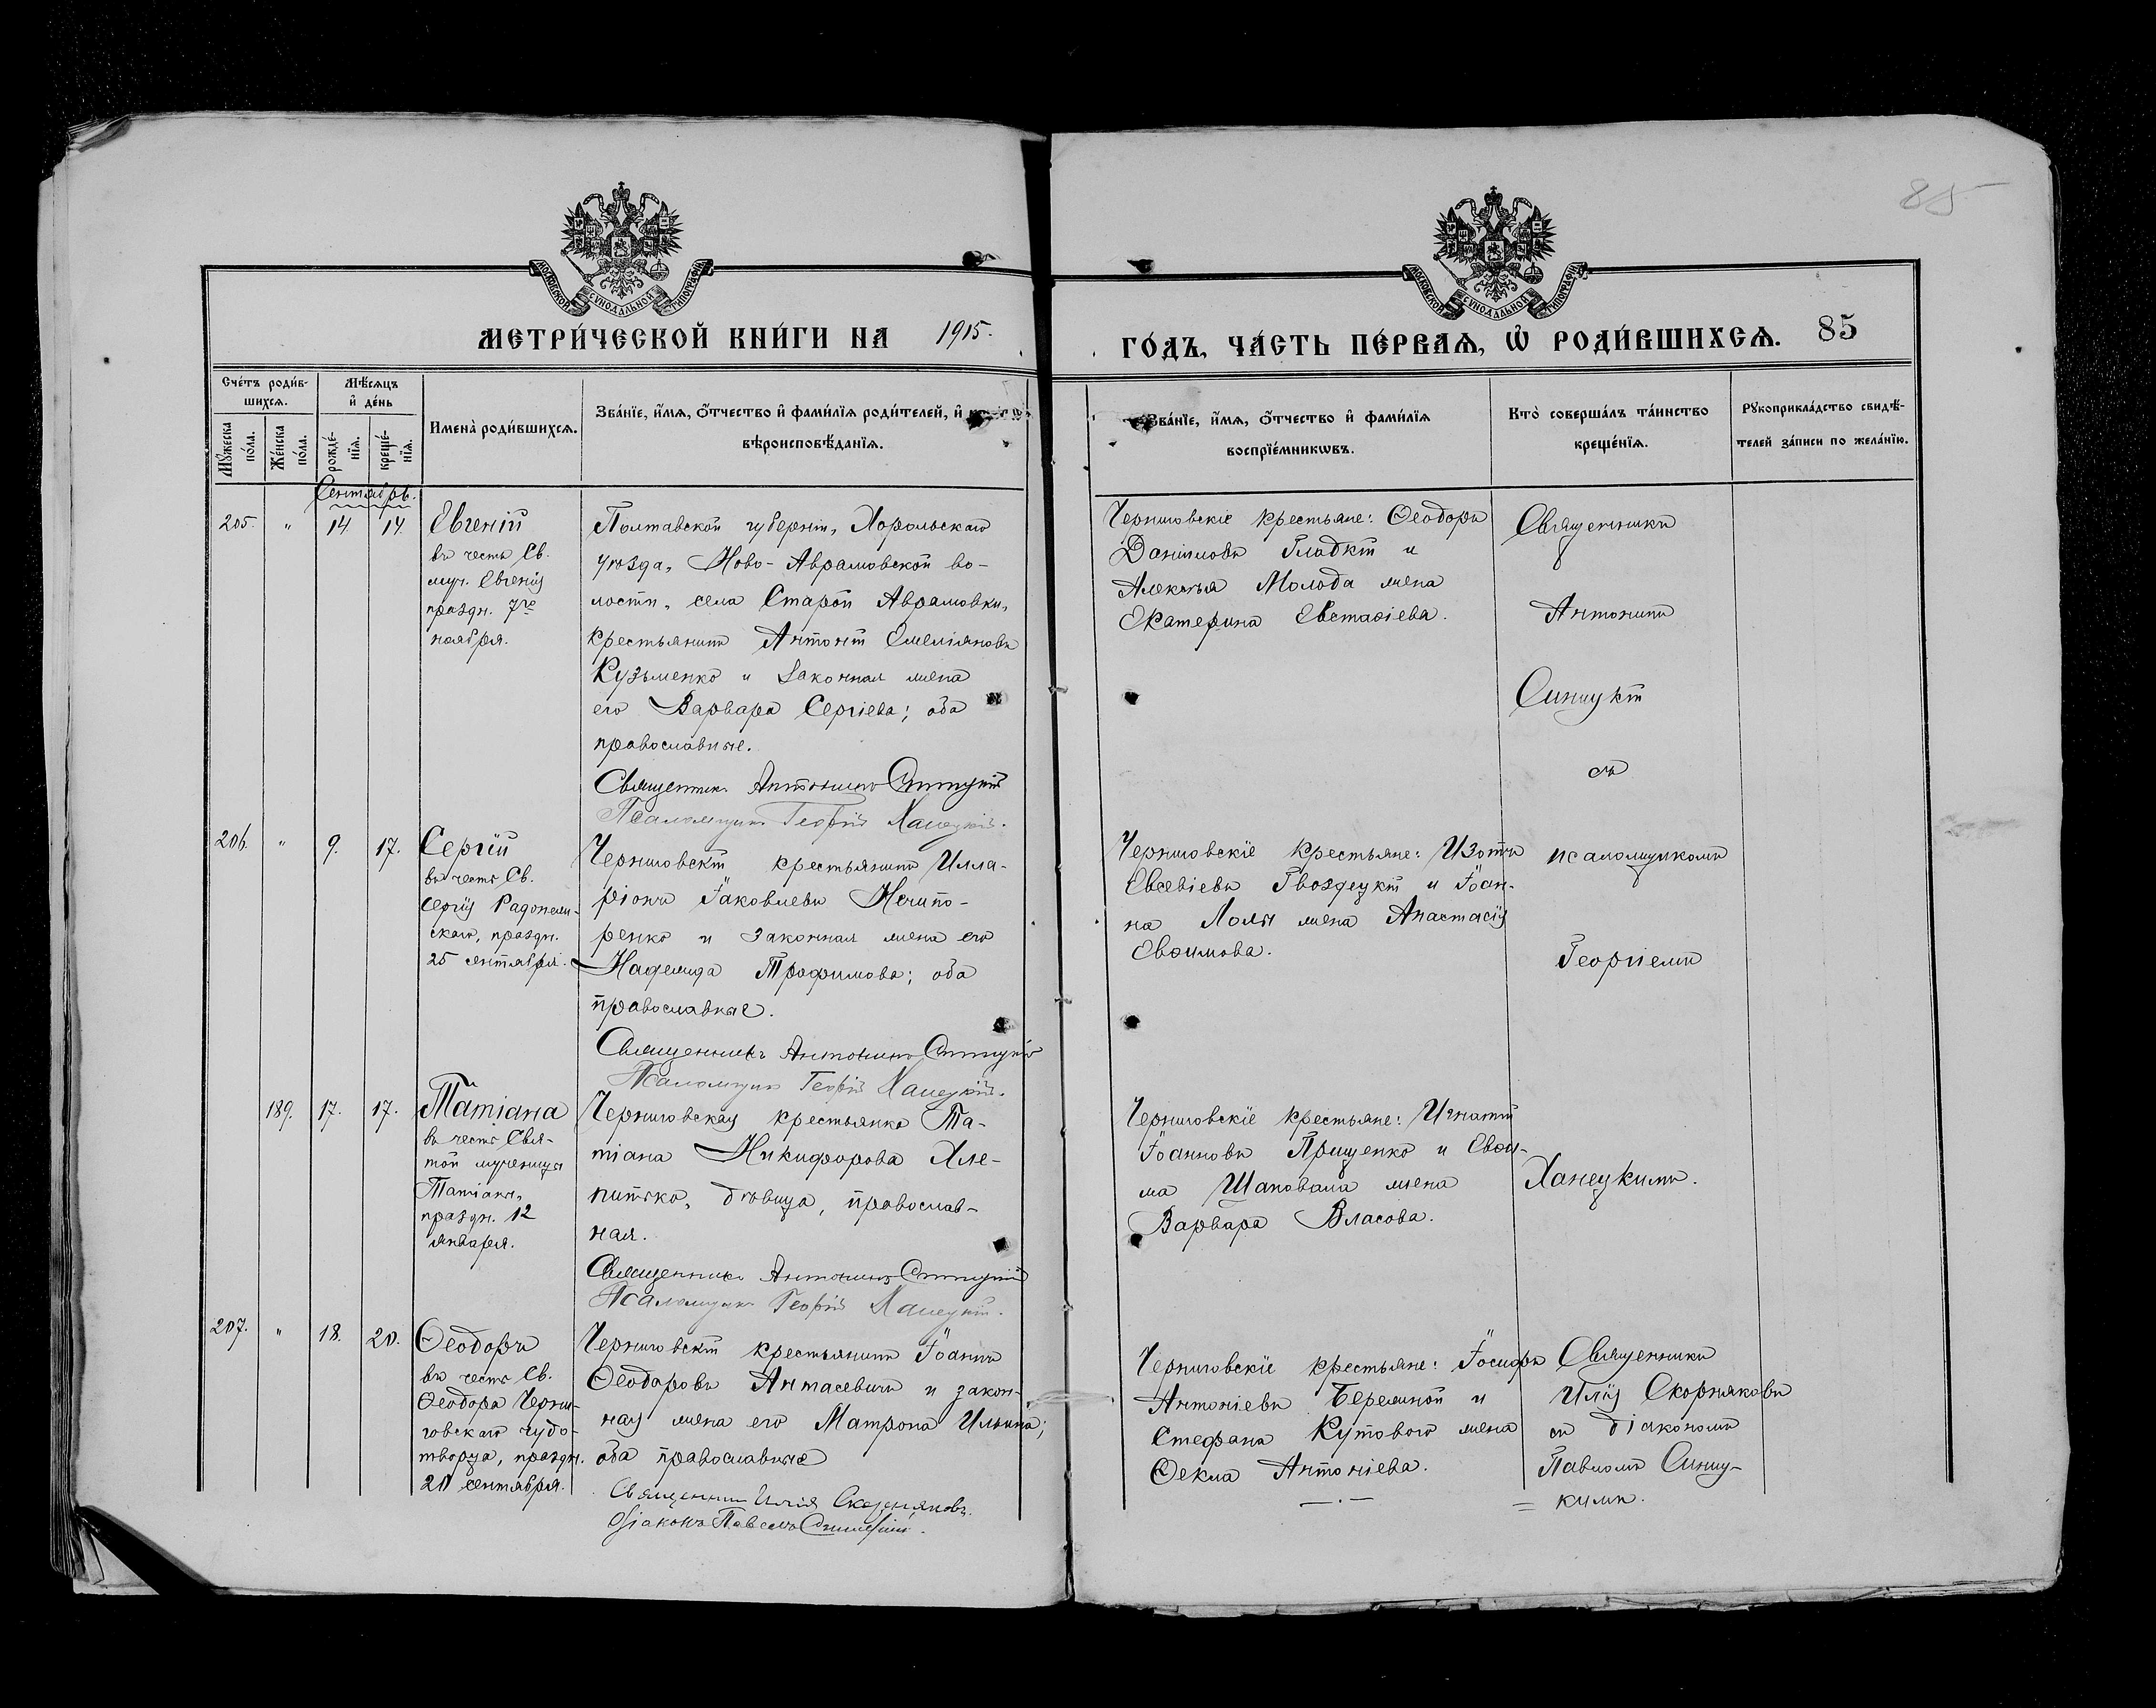 85
МОСКОВСКОЙ СѴНОДАЛЬНОЙ ТИПОГРАФІИ
МОСКОВСКОЙ СѴНОДАЛЬНОЙ ТИПОГРАФІИ
МЕТРИ́ЧЕСКОЙ КНИ́ГИ НА 1915.
ГО́ДЪ, ЧА́СТЬ ПЕ́РВАѦ, Ѡ҆ РОДИ́ВШИХСѦ. 85
Сче́тъ роди́в-
шихсѧ.
Мѣ́сѧцъ
и҆ де́нь
Мꙋ́жеска
по́ла.
Же́нска
по́ла.
рожде́-
нїѧ.
креще́-
нїѧ.
Имена̀ роди́вшихсѧ.
Зва́нїе, и҆́мѧ, ѻ҆́тчество и҆ фами́лїѧ роди́телей, и҆
вѣроисповѣ́данїѧ.
Зва́нїе, и҆́мѧ, ѻ҆́тчество и҆ фами́лїѧ
воспрїе́мникѡвъ.
Кто̀ соверша́лъ та́инство
креще́нїѧ.
Рꙋкоприкла́дство свидѣ́-
телей за́писи по жела́нїю.
Сентябрь.
205. " 14 14.
Евгеній
въ честь Св.
муч. Евгенія
праздн. 7го
ноября.
Полтавской губерніи, Хорольскаго
уѣзда, Ново-Аврамовской во-
лости, села Старой Аврамовки,
крестьянинъ Антоній Емеліяновъ
Кузьменко и законная жена
его Варвара Сергіева; оба
православные.
Священникъ Антонинъ Синицкій
Псаломщикъ Георгій Ханецкій.
Черниговскіе крестьяне: Ѳеодоръ
Даніиловъ Гладкій и
Алексѣя Молода жена
Екатерина Евстаѳіева.
Священникъ
Антонинъ
Синицкій
съ
206. " 9. 17.
Сергій
въ честь Св.
Сергія Радонеж-
скаго, праздн.
25 сентября.
Черниговскій крестьянинъ Илла-
ріонъ Іаковлевъ Нечипо-
ренко и законная жена его
Надежда Трофимова; оба
православные.
Священникъ Антонинъ Синицкій
Псаломщикъ Георгій Ханецкій.
Черниговскіе крестьяне: Изотъ
Евсевіевъ Гвоздецкій и Іоан-
на жена Анастасія
Евѳимова.
псаломщикомъ
Георгіемъ
189. 17. 17.
Татіана
въ честь Свя-
той мученицы
Татіаны,
праздн. 12
января.
Черниговская крестьянка Та-
тіана Никифорова Хле-
питько, дѣвица, православ-
ная.
Священникъ Антонинъ Синицкій
Псаломщикъ Георгій Ханецкій.
Черниговскіе крестьяне: Игнатій
Іоанновъ Прищенко и Евѳи-
ма Шаповала жена
Варвара Власова.
Ханецкимъ.
207. " 18. 20.
Ѳеодоръ
въ честь Св.
Ѳеодора Черни-
говскаго чудо-
творца, праздн.
20 сентября.
Черниговскій крестьянинъ Іоаннъ
Ѳеодоровъ Антасевичъ и закон-
ная жена его Матрона Ильина;
оба православные
Священникъ Илія Скорняковъ.
Діаконъ Павелъ Синицкій.
Черниговскіе крестьяне: Іосифъ
Антоніевъ Бережной и
Стефана Кутового жена
Ѳекла Антоніева.
Священникъ
Илія Скорняковъ
съ діакономъ
Павломъ Синиц-
кимъ.